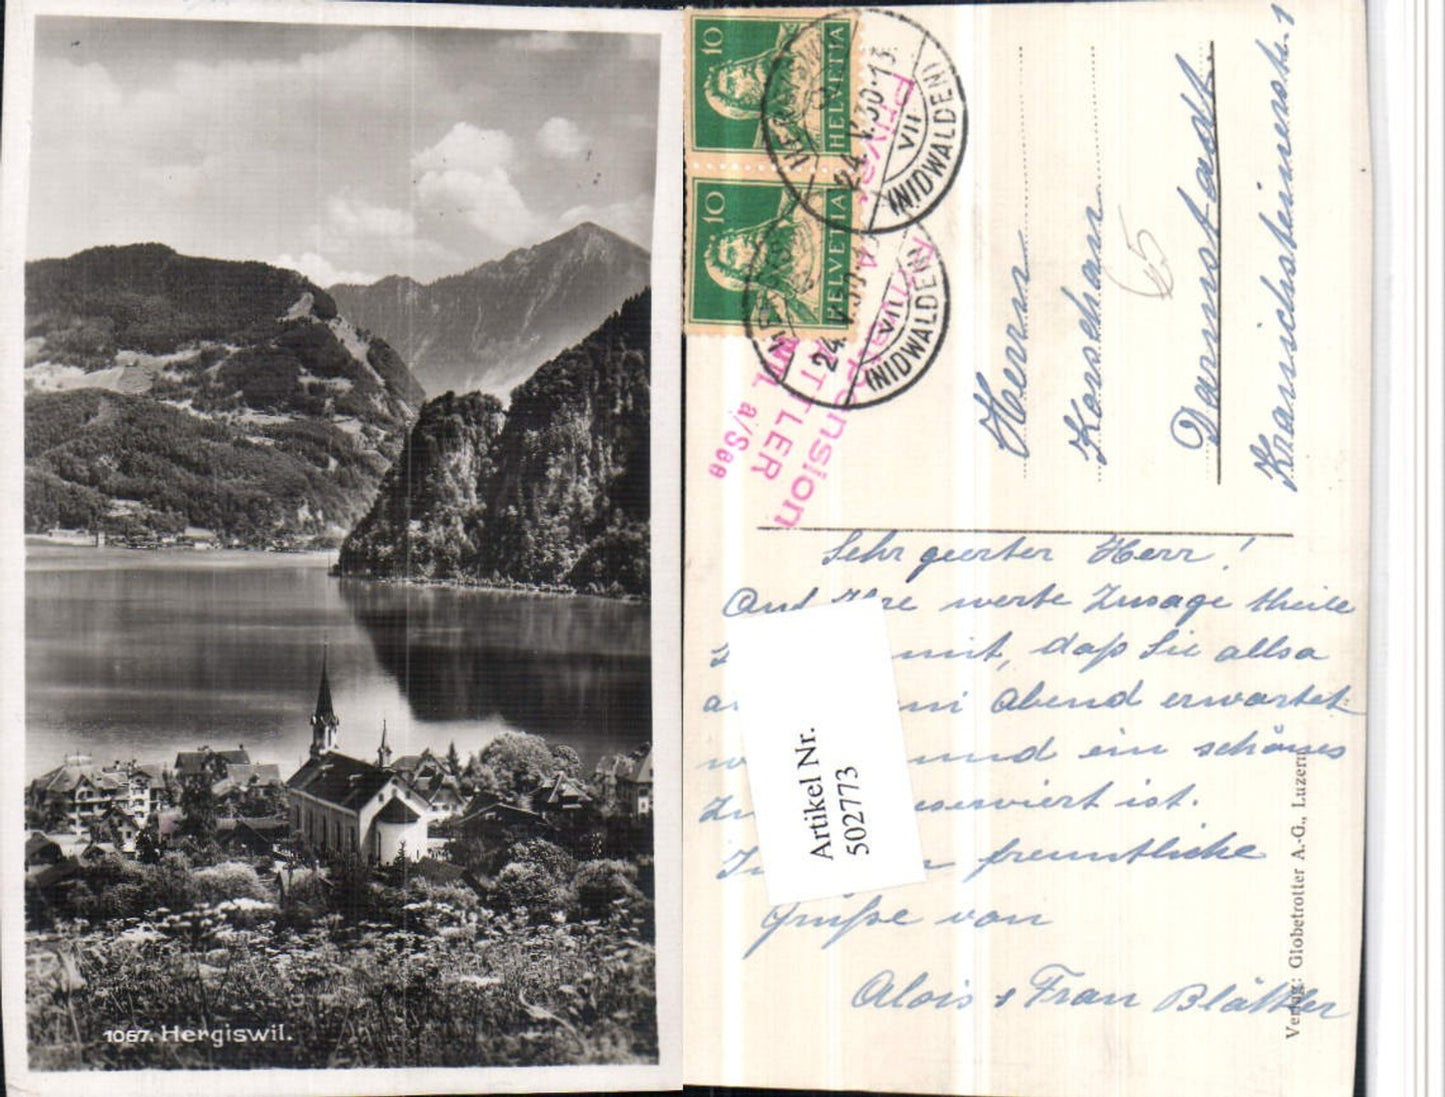 1067. Hergiswil.
10
HELVETIA
10
HELVETIA
24.V.30-13
VII
(NIDWALDEN)
24.V.30
VII
(NIDWALDEN)
Privat-
pension
TTLER
a/See
Herrn
Darmstadt.
65
Sehr geerter Herr!
Auf Ihre werte Zusage theile
mit, daß Sie allso
Abend erwartet
und ein schönes
reserviert ist.
freuntliche
Grüße von
Alois & Frau Blättler
Artikel Nr.
502773
Verlag: Globetrotter A.-G., Luzern